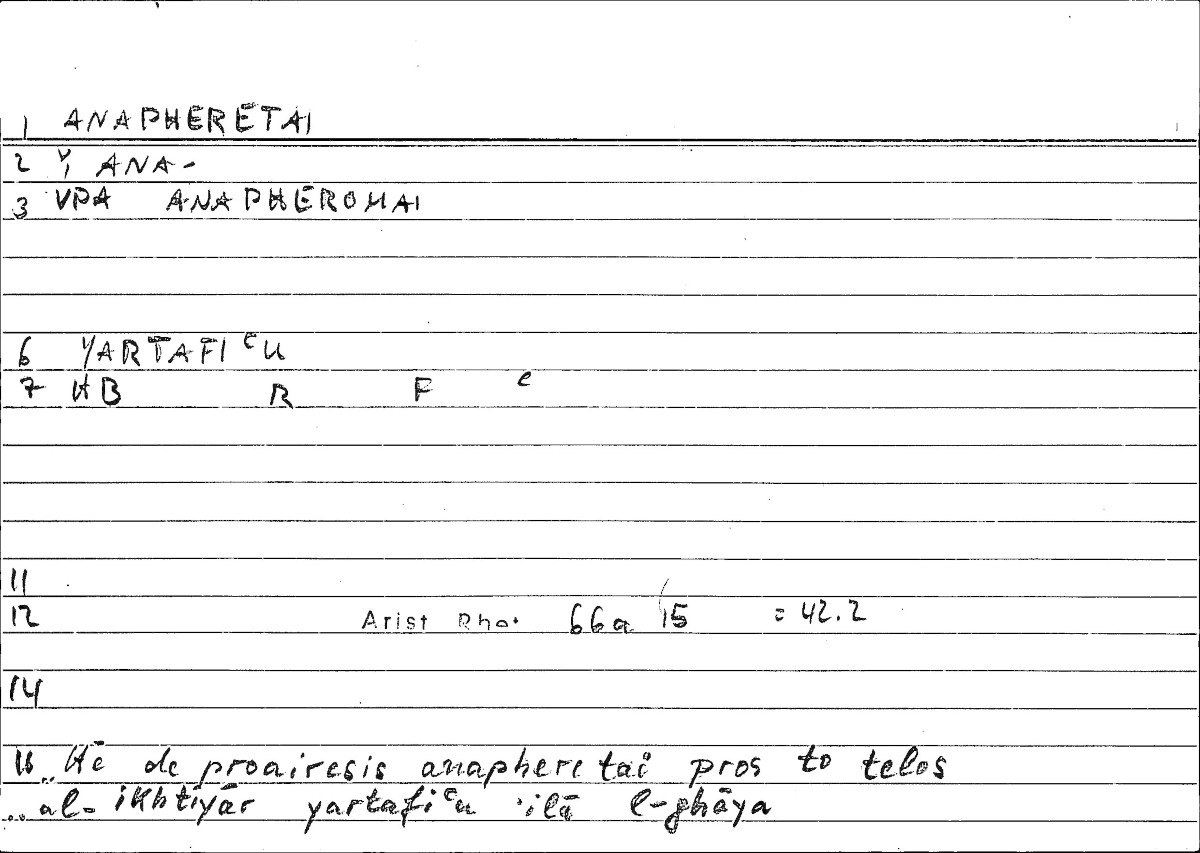 1 ANAPHERETAI
2 Y, ANA-
3 VPA ANAPHEROMAI
6 YARTAFIcU
7 HB R F c
11
12 Arist Rhet 66a 15 = 42.2
14
16 ..Hē de proairesis anapheretai pros to telos
..al-ikhtiyār yartaficu 'ilā l-ghāya